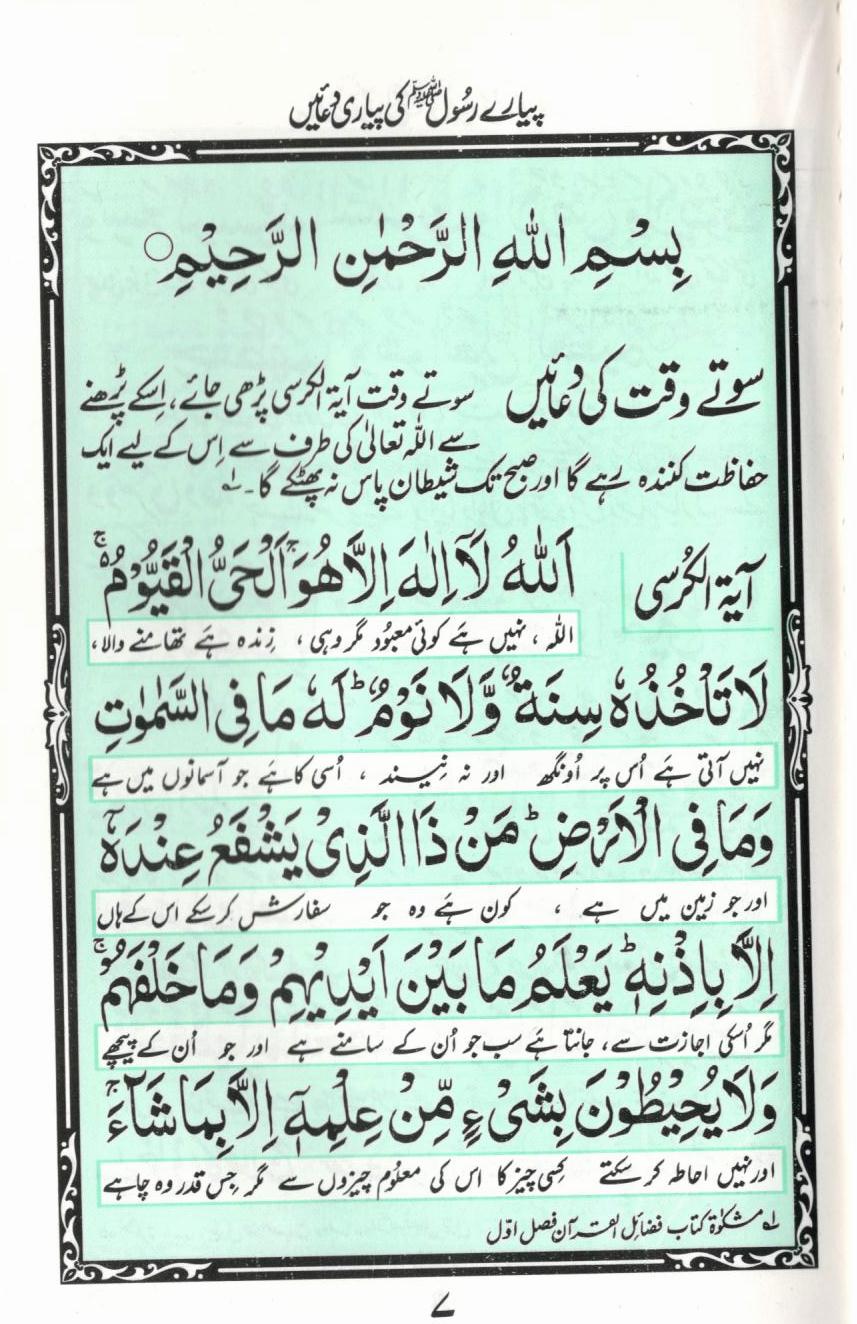 پیارے رسُول ﷺ کی پیاری دُعائیں
بِسْمِ اللهِ الرَّحْمٰنِ الرَّحِيْمِ ○
سوتے وقت کی دُعائیں
سوتے وقت آیۃ الکرسی پڑھی جائے، اِسکے پڑھنے
سے اللہ تعالیٰ کی طرف سے اِس کے لیے ایک
حفاظت کنندہ رہے گا اور صبح تک شیطان پاس نہ پھٹکے گا۔ لہ
آیۃ الکُرسی
اَللهُ لَآ اِلٰهَ اِلَّا هُوَ ۚ اَلْحَىُّ الْقَيُّوْمُ ۚ
اللہ ، نہیں ہے کوئی معبُود مگر وہی ، زِندہ ہے تھامنے والا،
لَا تَاْخُذُهٗ سِنَةٌ وَّلَا نَوْمٌ ؕ لَهٗ مَا فِى السَّمٰوٰتِ
نہیں آتی ہے اُس پر اُونگھ اور نہ نِیند ، اُسی کا ہے جو آسمانوں میں ہے
وَمَا فِى الْاَرْضِ ؕ مَنْ ذَا الَّذِىْ يَشْفَعُ عِنْدَهٗٓ
اور جو زمین میں ہے ، کون ہے وہ جو سفارش کر سکے اس کے ہاں
اِلَّا بِاِذْنِهٖ ؕ يَعْلَمُ مَا بَيْنَ اَيْدِيْهِمْ وَمَا خَلْفَهُمْ ۚ
مگر اُسکی اجازت سے، جانتا ہے سب جو اُن کے سامنے ہے اور جو اُن کے پیچھے
وَلَا يُحِيْطُوْنَ بِشَىْءٍ مِّنْ عِلْمِهٖٓ اِلَّا بِمَا شَآءَ ۚ
اور نہیں احاطہ کر سکتے کِسی چیز کا اس کی معلُوم چیزوں سے مگر جِس قدر وہ چاہے
لہ مشکوٰۃ کتاب فضائل القرآن فصل اوّل
۷